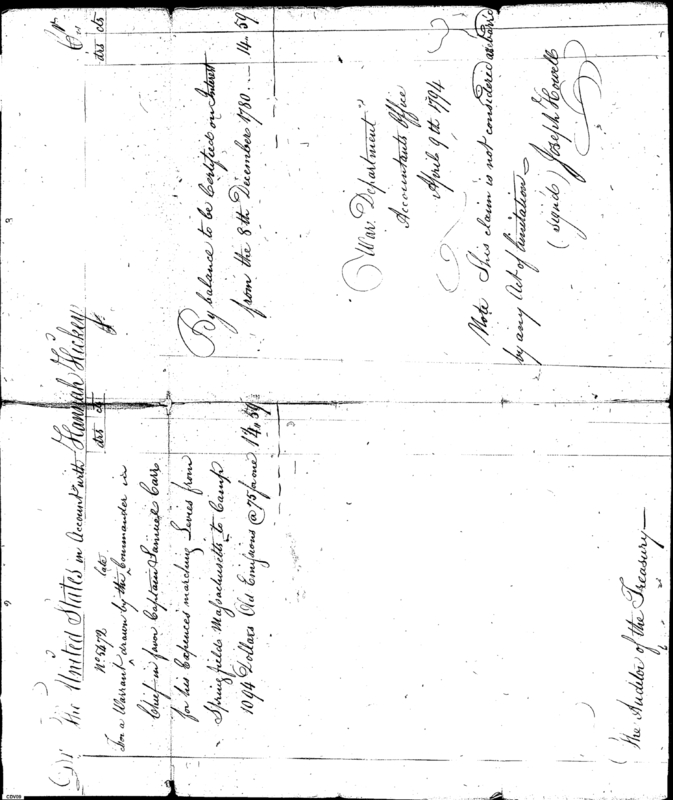 Dr The United States in Account with Hannah Hickey Cr
drs cts
No 5672
For a Warrant drawn by the late Commander in
Chief in favor Captain Samuel Carr
for his Expences marching Levies from
Springfield Massachusetts to Camp
1094 Dollars Old Emissions @ 75 for one 14.59
drs cts
By balance to be Certified on Interest
from the 8th December 1780 .... 14.59
War Department
Accountants Office
April 9th 1794
Note This claim is not considered as barred
by any Act of limitation
(signd) Joseph Howell
The Auditor of the Treasury
CDV09